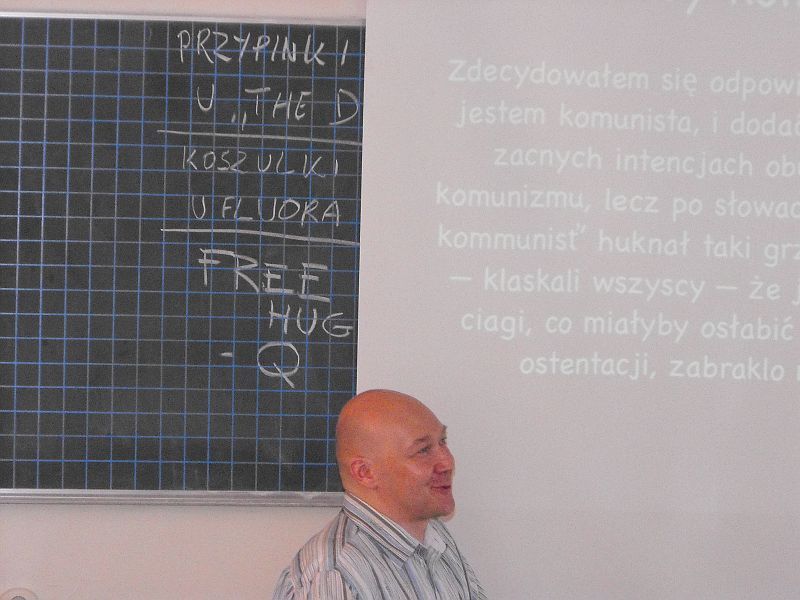 PRZYPINKI
U „THE D
KOSZULKI
U FLUORA
FREE
HUG
- Q
Zdecydowałem się odpowi
jestem komunista, i dodać
zacnych intencjach obu
komunizmu, lecz po słowac
kommunist" huknął taki grz
— klaskali wszyscy — że j
ciagi, co miałyby osłabić
ostentacji, zabraklo